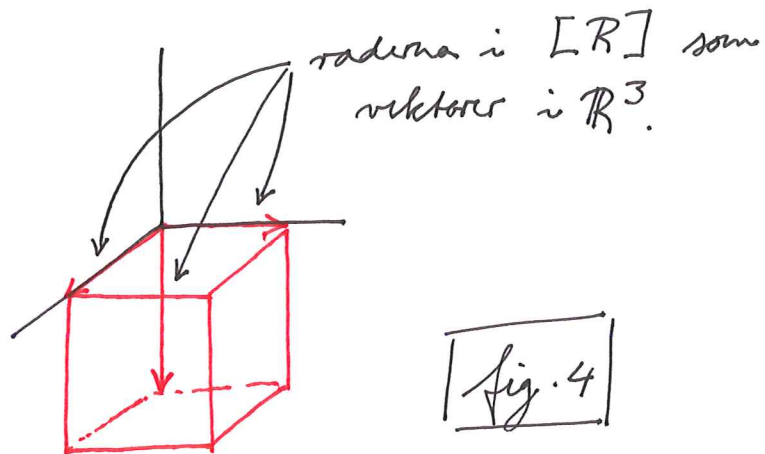 raderna i [R] som
vektorer i ℝ³.
fig. 4